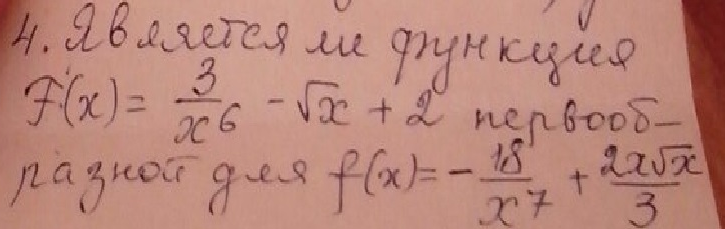 4. Является ли функция
F(x) = 3/x⁶ - √x + 2 первооб-
разной для f(x) = - 18/x⁷ + 2x√x/3